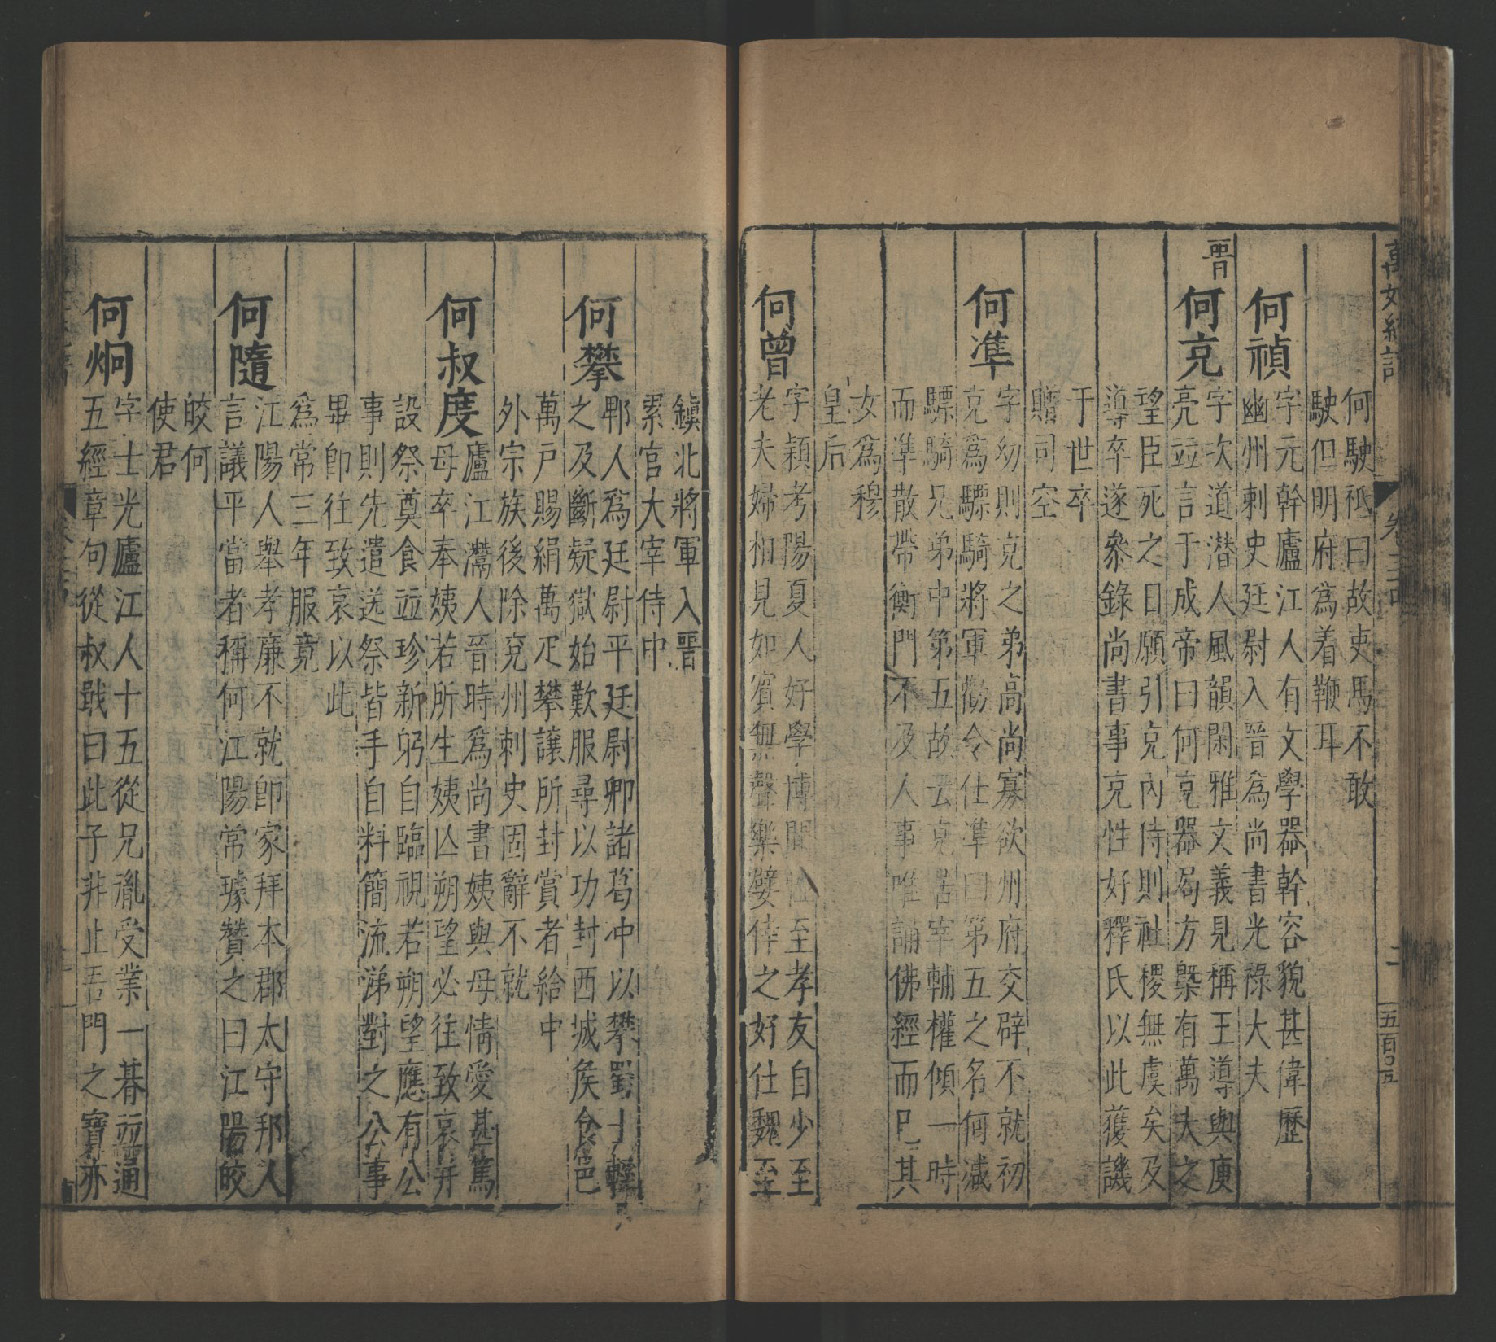 萬姓統譜 卷三十四 二
何駛祗曰故吏馬不敢
駛但明府爲着鞭耳
何禎 字元幹廬江人有文學器幹容貌甚偉歷
幽州刺史廷尉入晉爲尚書光祿大夫
晉 何充 字次道潜人風韻閑雅文義見稱王導與庾
亮竝言于成帝曰何充器局方槩有萬夫之
望臣死之日願引充內侍則社稷無虞矣及
導卒遂叅錄尚書事充性好釋氏以此獲譏
于世卒
贈司空
何準 字幼則充之弟高尚寡欲州府交辟不就初
充爲驃騎將軍勸令仕準曰第五之名何減
驃騎兄弟中第五故云充居宰輔權傾一時
而準散帶衡門不及人事唯誦佛經而已其
女爲穆
皇后
何曾 字穎考陽夏人好學博聞性至孝友自少至
老夫婦相見如賓無聲樂嬖倖之好仕魏至
鎮北將軍入晉
累官大宰侍中
何攀 郫人爲廷尉平廷尉卿諸葛冲以攀蜀士輕
之及斷疑獄始歎服尋以功封西城矦食邑
萬戸賜絹萬疋攀讓所封賞者給中
外宗族後除兗州刺史固辭不就
何叔度 廬江灊人晉時爲尚書姨與母情愛甚篤
母卒奉姨若所生姨亾朔望必往致哀并
設祭奠食竝珍新躬自臨視若朔望應有公
事則先遣送祭皆手自料簡流涕對之公事
畢卽往致哀以此
爲常三年服竟
何隨 江陽人舉孝廉不就卽家拜本郡太守邦人
言議平當者稱何江陽常璩贊之曰江陽皎
皎何
使君
何炯 字士光廬江人十五從兄胤受業一朞竝通
五經章句從叔戢曰此子非止吾門之寶亦